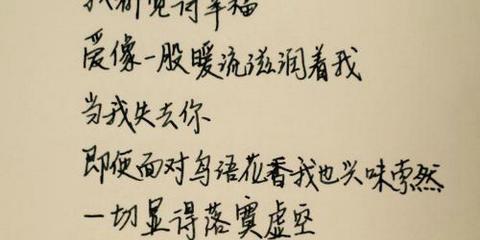 我都觉得幸福
爱像一股暖流滋润着我
当我失去你
即便面对鸟语花香我也兴味索然
一切显得落寞虚空